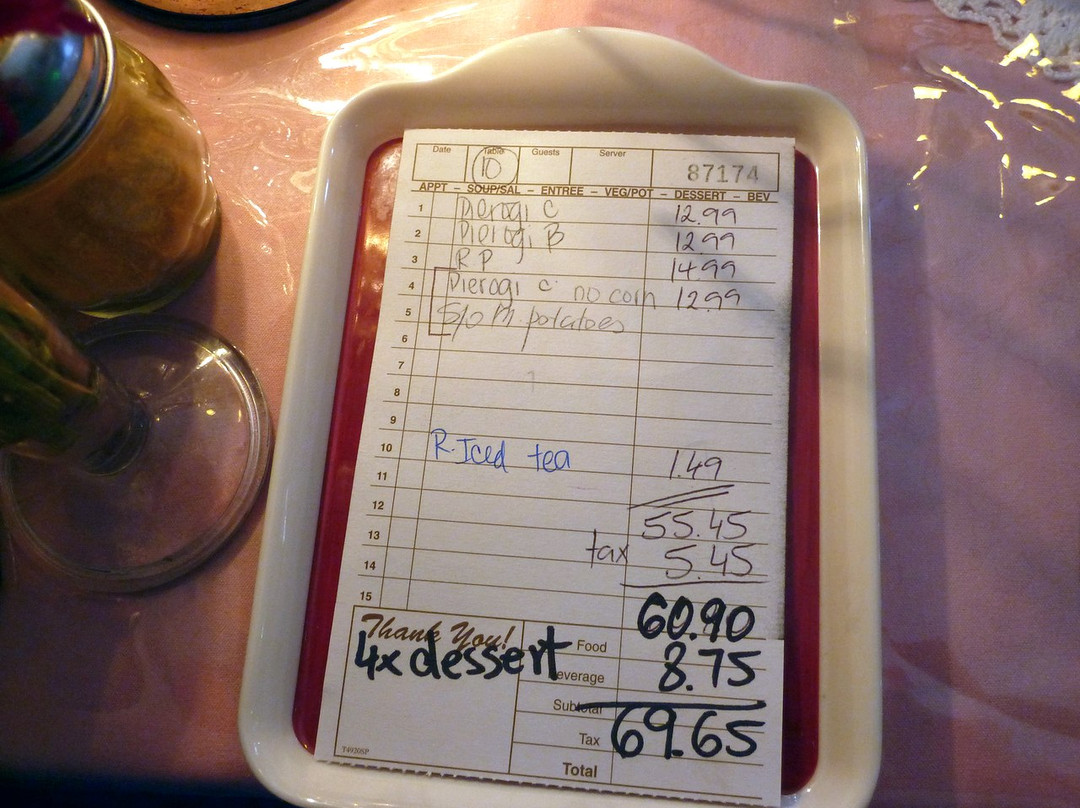 Date Table Guests Server
10 87174
APPT – SOUP/SAL – ENTREE – VEG/POT – DESSERT – BEV
1 Pierogi C 12.99
2 Pierogi B 12.99
3 R P 14.99
4 Pierogi C no corn 12.99
5 S/O M. potatoes
6
7
8
9
10 R. Iced tea 1.49
11
12 55.45
13 tax 5.45
14
15 60.90
Thank You!
Food
4x dessert 8.75
Beverage
Subtotal
69.65
Tax
Total
T4920SP